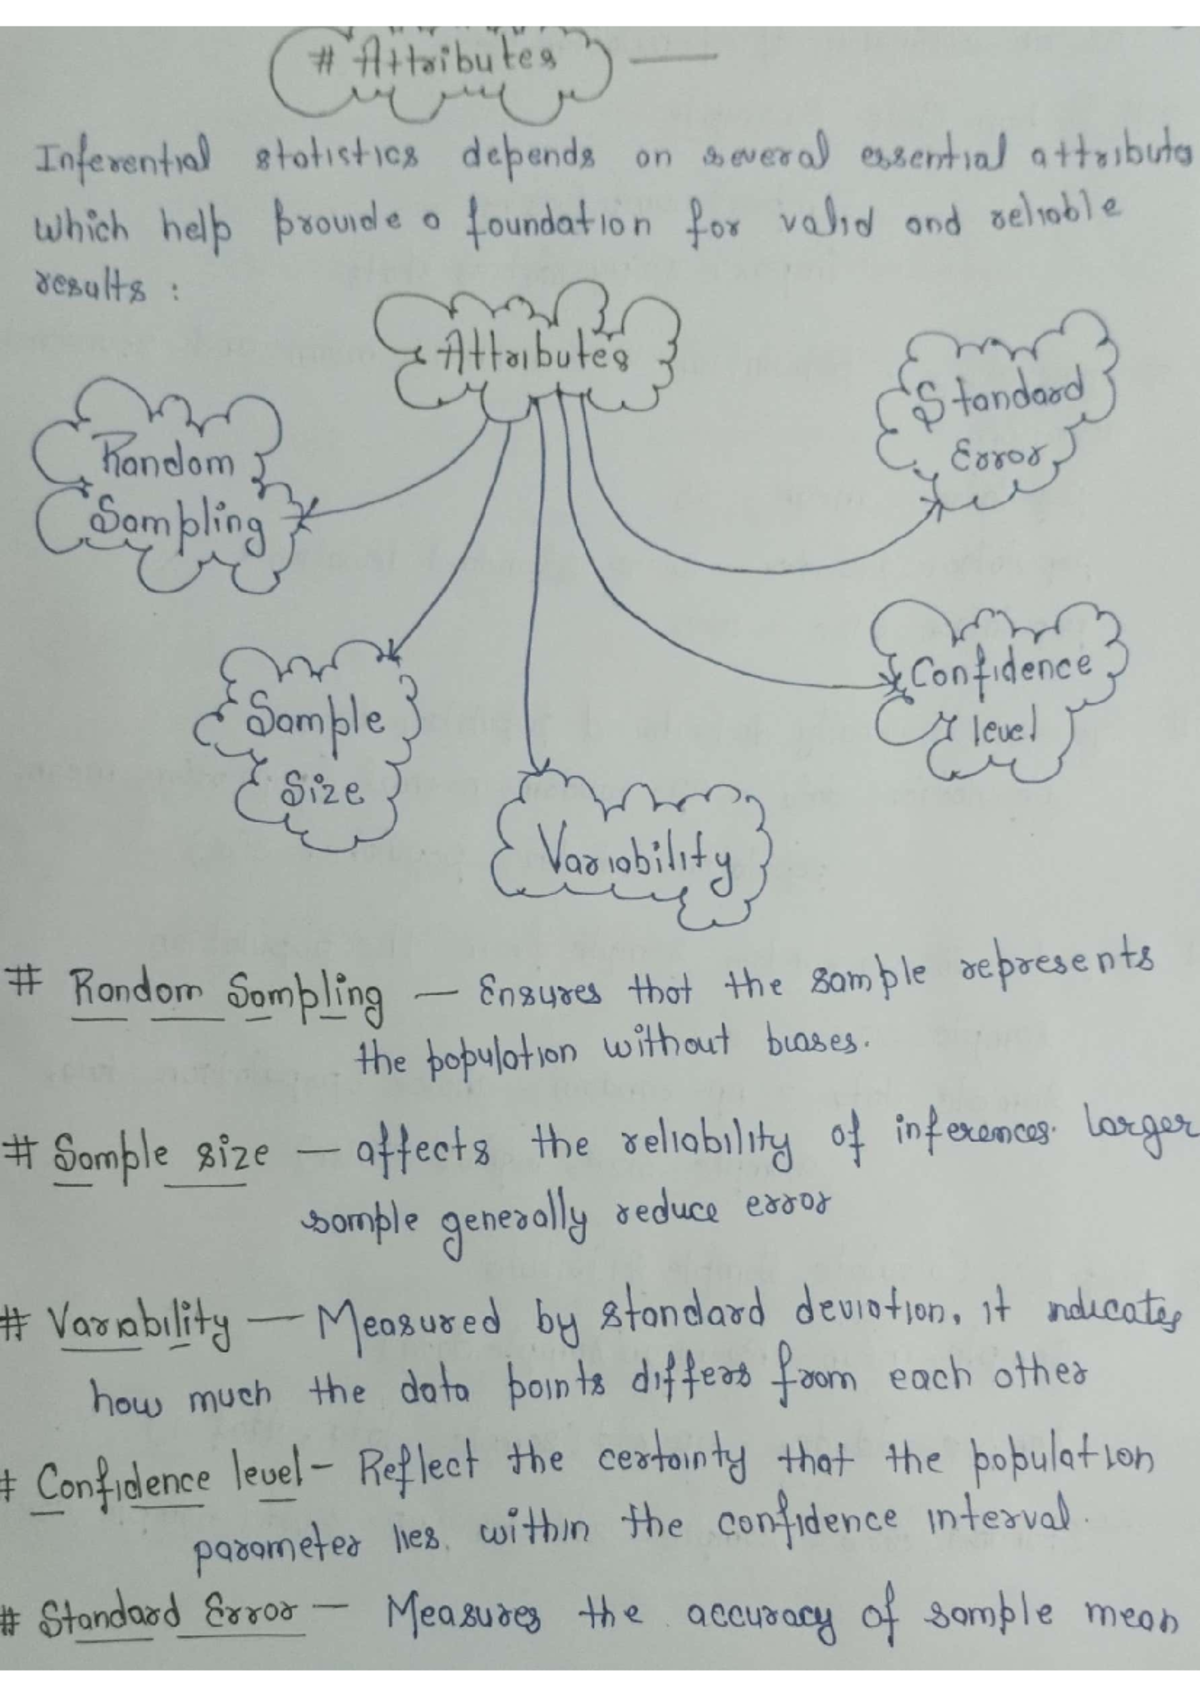 # Attributes —
Inferential statistics depends on several essential attributes
which help provide a foundation for valid and reliable
results :
Attributes
Standard
Error
Random
Sampling
Confidence
level
Sample
Size
Variability
# Random Sampling — Ensures that the sample represents
the population without biases.
# Sample size — affects the reliability of inferences. larger
sample generally reduce error
# Variability — Measured by standard deviation, it indicates
how much the data points differs from each other
# Confidence level - Reflect the certainty that the population
parameter lies within the confidence interval.
# Standard Error — Measures the accuracy of sample mean